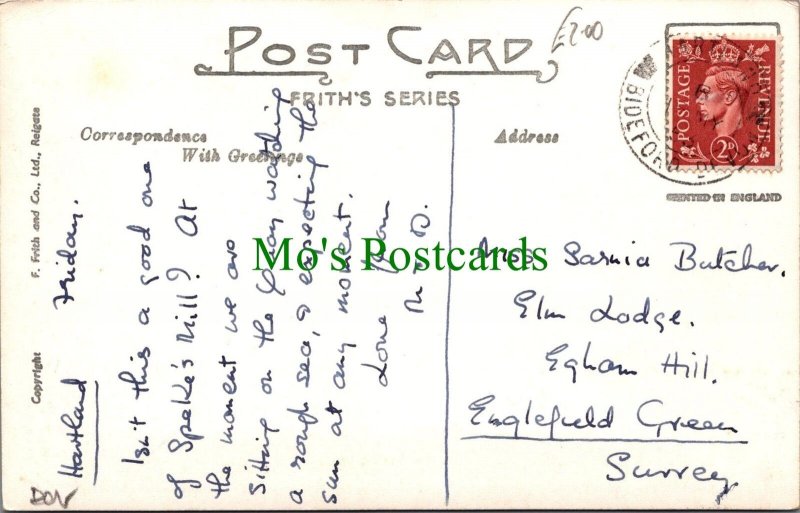 £2.00
POST CARD
FRITH'S SERIES
Correspondence
With Greetings
Address
POSTAGE
REVENUE
2D
BIDEFORD
PRINTED IN ENGLAND
Copyright F. Frith and Co., Ltd., Reigate
Hartland Friday.
Isn't this a good one
of Speke's Mill? At
the moment we are
sitting on the Quay watching
a rough sea, & expecting the
sun at any moment.
Love from
M & D.
Miss Sarnia Butcher.
Elm Lodge.
Egham Hill.
Englefield Green
Surrey
DEV
Mo's Postcards